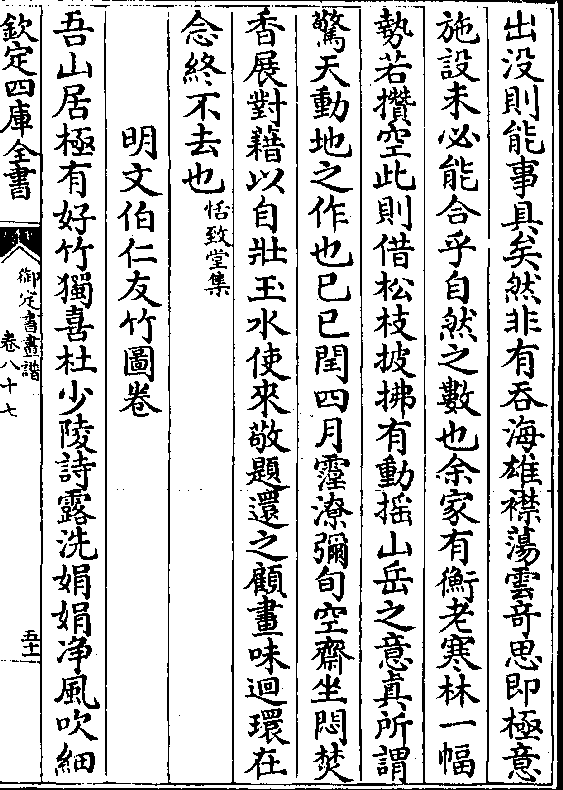 出没則能事具矣然非有吞海雄襟蕩雲奇思即極意
施設未必能合乎自然之數也余家有衡老寒林一幅
勢若攢空此則借松枝披拂有動揺山岳之意真所謂
驚天動地之作也已巳閏四月霪潦彌旬空齋坐悶焚
香展對藉以自壯玉水使來敬題還之顧畫味迴環在
念終不去也恬致堂集
明文伯仁友竹圖卷
吾山居極有好竹獨喜杜少陵詩露洗娟娟净風吹細
欽定四庫全書
御定書畫譜
卷八十七
五十